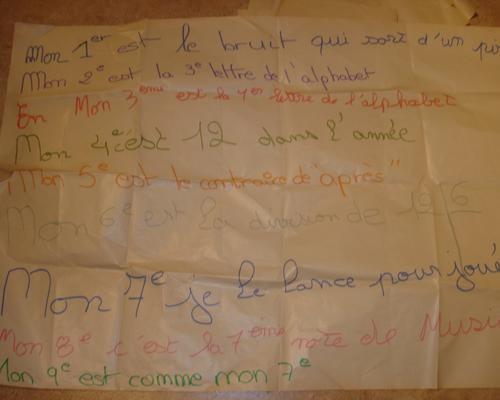 Mon 1er est le bruit qui sort d'un
Mon 2e est la 3e lettre de l'alphabet
En Mon 3eme est la 1er lettre de l'alphabet
Mon 4e c'est 12 dans l'année
Mon 5e est le contraire de "après"
Mon 6e est la division de 12/6
Mon 7e je le lance pour joué
Mon 8e c'est la 7eme note de Musi
Mon 9e est comme mon 7e